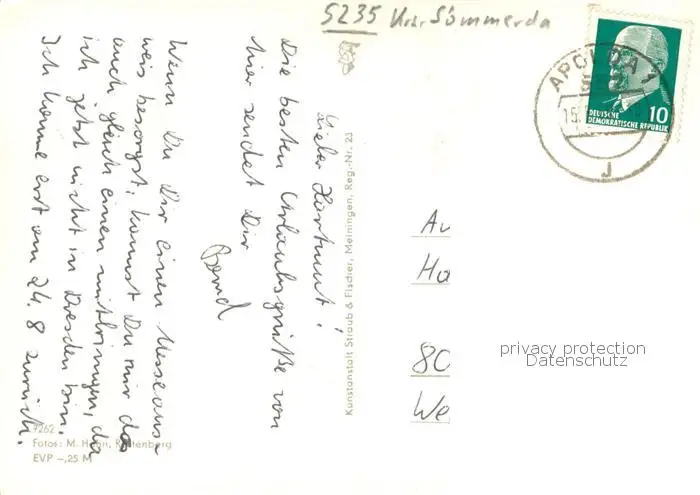 5235 Krs. Sömmerda
APOLDA 1
15.
J
10
DEUTSCHE
DEMOKRATISCHE REPUBLIK
Lieber Hartmut!
Die besten Urlaubsgrüße von
hier sendet Dir
Bernd
Wenn Du Dir einen Messeaus-
weis besorgst, kannst Du mir das
auch gleich einen mitbringen, da
ich jetzt nicht in Dresden bin.
Ich komme erst am 24. 8 zurück.
Kunstanstalt Straub & Fischer, Meiningen, Reg.-Nr. 23
Au
Ha
80
We
privacy protection
Datenschutz
7262
Fotos: M. Hahn,
EVP -,25 M